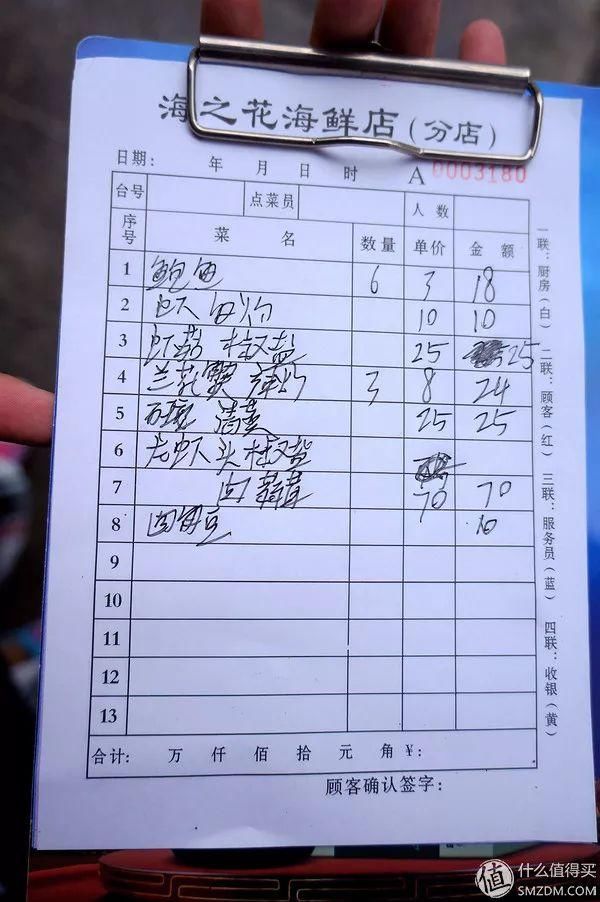 海之花海鲜店(分店)
日期: 年 月 日 时 A 0003180
台号 点菜员 人数
序号 菜名 数量 单价 金额
1 鲍鱼 6 3 18
2 虾 白灼 10 10
3 椒盐 25 25
4 兰花 3 8 24
5 清蒸 25 25
6 龙虾头 椒盐
7 肉 70 70
8 10
9
10
11
12
13
合计: 万 仟 佰 拾 元 角 ¥:
顾客确认签字:
一联:厨房(白) 二联:顾客(红) 三联:服务员(蓝) 四联:收银(黄)
值 什么值得买
SMZDM.COM